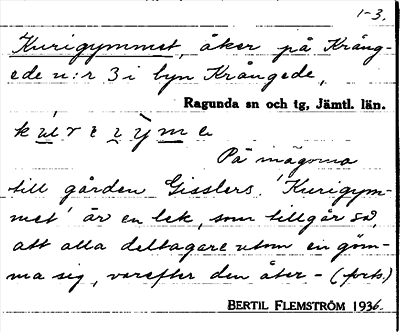 1-3.
Kurigymmet, åker på Krång-
ede n:r 3 i byn Krångede,
Ragunda sn och tg, Jämtl. län.
På mågorna
till gården Gisslers. 'Kurigym-
met' är en lek, som tillgår så,
att alla deltagare utom en göm-
ma sig, varefter den åter- (forts.)
BERTIL FLEMSTRÖM 1936.